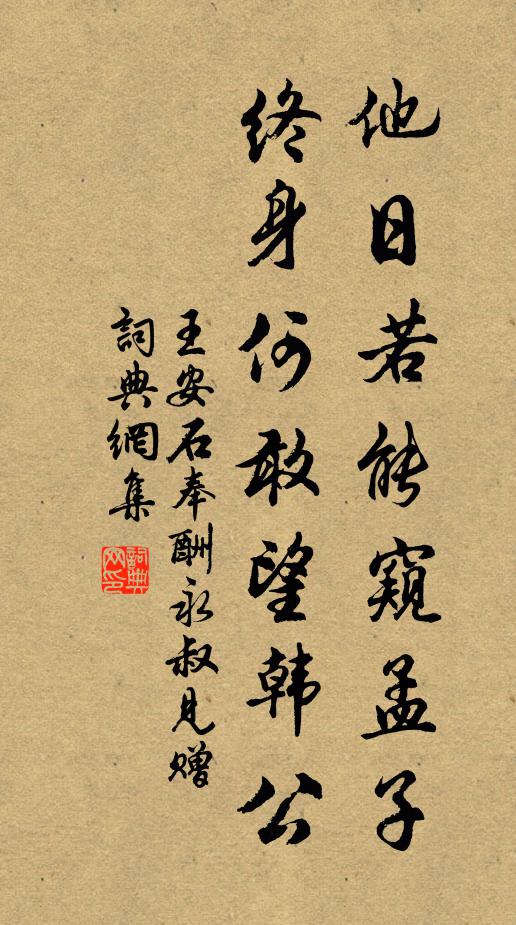 他日若能窺孟子
終身何敢望韩公
王安石奉酬永叔見赠
詞典網集
詞典網印